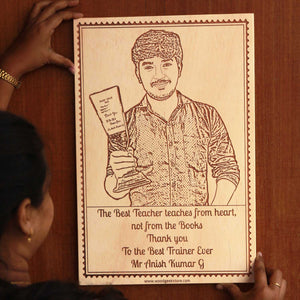 The Best Teacher teaches from heart,
not from the Books
Thank you
To the Best Trainer Ever
Mr Anish Kumar G
www.woodgeekstore.com